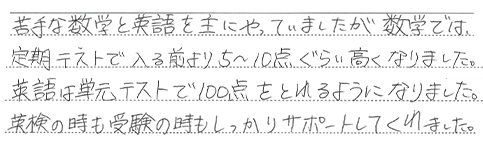 苦手な数学と英語を主にやっていましたが数学では、
定期テストで入る前より5～10点ぐらい高くなりました。
英語は単元テストで100点をとれるようになりました。
英検の時も受験の時もしっかりサポートしてくれました。